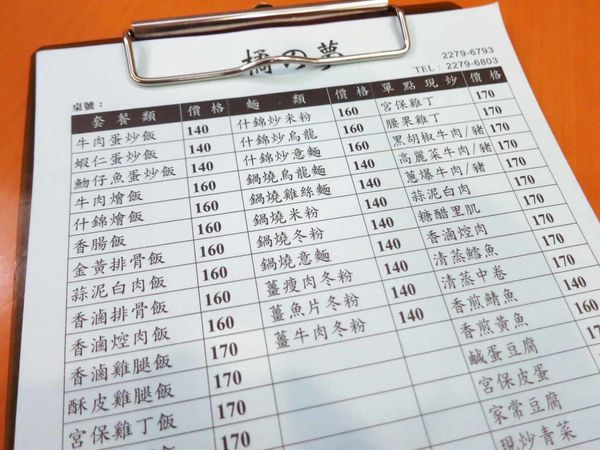 橘の夢
2279-6793
TEL: 2279-6803
桌號：
套餐類 價格 麵類 價格 單點現炒 價格
牛肉蛋炒飯 140 什錦炒米粉 160 宮保雞丁 170
蝦仁蛋炒飯 140 什錦炒烏龍 160 腰果雞丁 170
魩仔魚蛋炒飯 140 什錦炒意麵 160 黑胡椒牛肉/豬 170
牛肉燴飯 160 鍋燒烏龍麵 140 高麗菜牛肉/豬 170
什錦燴飯 160 鍋燒雞絲麵 140 蔥爆牛肉/豬 170
香腸飯 160 鍋燒米粉 140 蒜泥白肉 170
金黃排骨飯 160 鍋燒冬粉 140 糖醋里肌 170
蒜泥白肉飯 160 鍋燒意麵 140 香滷焢肉 170
香滷排骨飯 160 薑瘦肉冬粉 140 清蒸鱈魚 170
香滷焢肉飯 160 薑魚片冬粉 140 清蒸中卷
香滷雞腿飯 170 薑牛肉冬粉 140 香煎鯖魚
酥皮雞腿飯 170 香煎黃魚
宮保雞丁飯 170 鹹蛋豆腐
170 宮保皮蛋
家常豆腐
現炒青菜